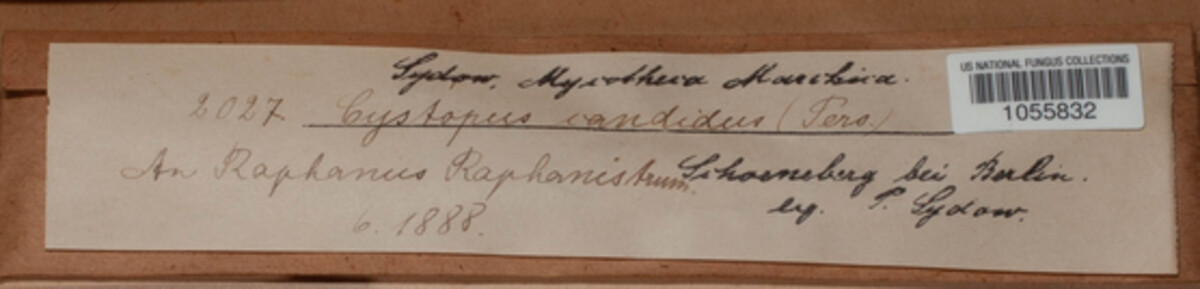 Sydow, Mycotheca Marchica.
US NATIONAL FUNGUS COLLECTIONS
1055832
2027 Cystopus candidus (Pers.)
An Raphanus Raphanistrum. Schoeneberg bei Berlin.
6. 1888. leg. P. Sydow.